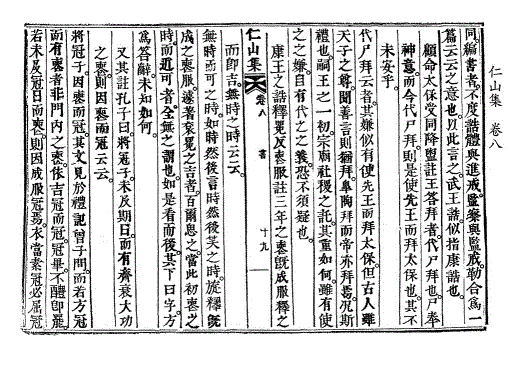 仁山集 卷八
同編書者不度誥體與進戒監察與監戒勒合爲一
篇云云之意也以此言之武王誥似指康誥也
顧命太保受同降盥註王答拜者代尸拜也尸奉
神意而今代尸拜則是使先王而拜太保也其不
未安乎
代尸拜云者其嫌似有使先王而拜太保但古人雖
天子之尊聞善言則猶拜臯陶拜而帝亦拜焉况斯
禮也嗣王之一初宗廟社稷之託其重如何雖有使
之之嫌自有代之之義恐不須疑也
康王之誥釋冕反喪服註三年之喪旣成服釋之
仁山集 卷八 書 十九
而卽吉無時而可之時云云
無時而可之時如時然後言時然後笑之時旋釋旣
成之喪服遽著衮冕之吉者百爾思之當此初喪之
時而適可者全無之謂也如是看而後其下曰字方
爲答辭未知如何
又其註孔子曰將冠子未及期日而有齊衰大功
之喪則因喪而冠云云
將冠子因喪而冠其文見於禮記曾子問而若方冠
而有喪者非門内之喪依吉冠而冠冠畢不醴卽罷
若未及冠日而喪則因成服冠焉本當素冠必屬冠